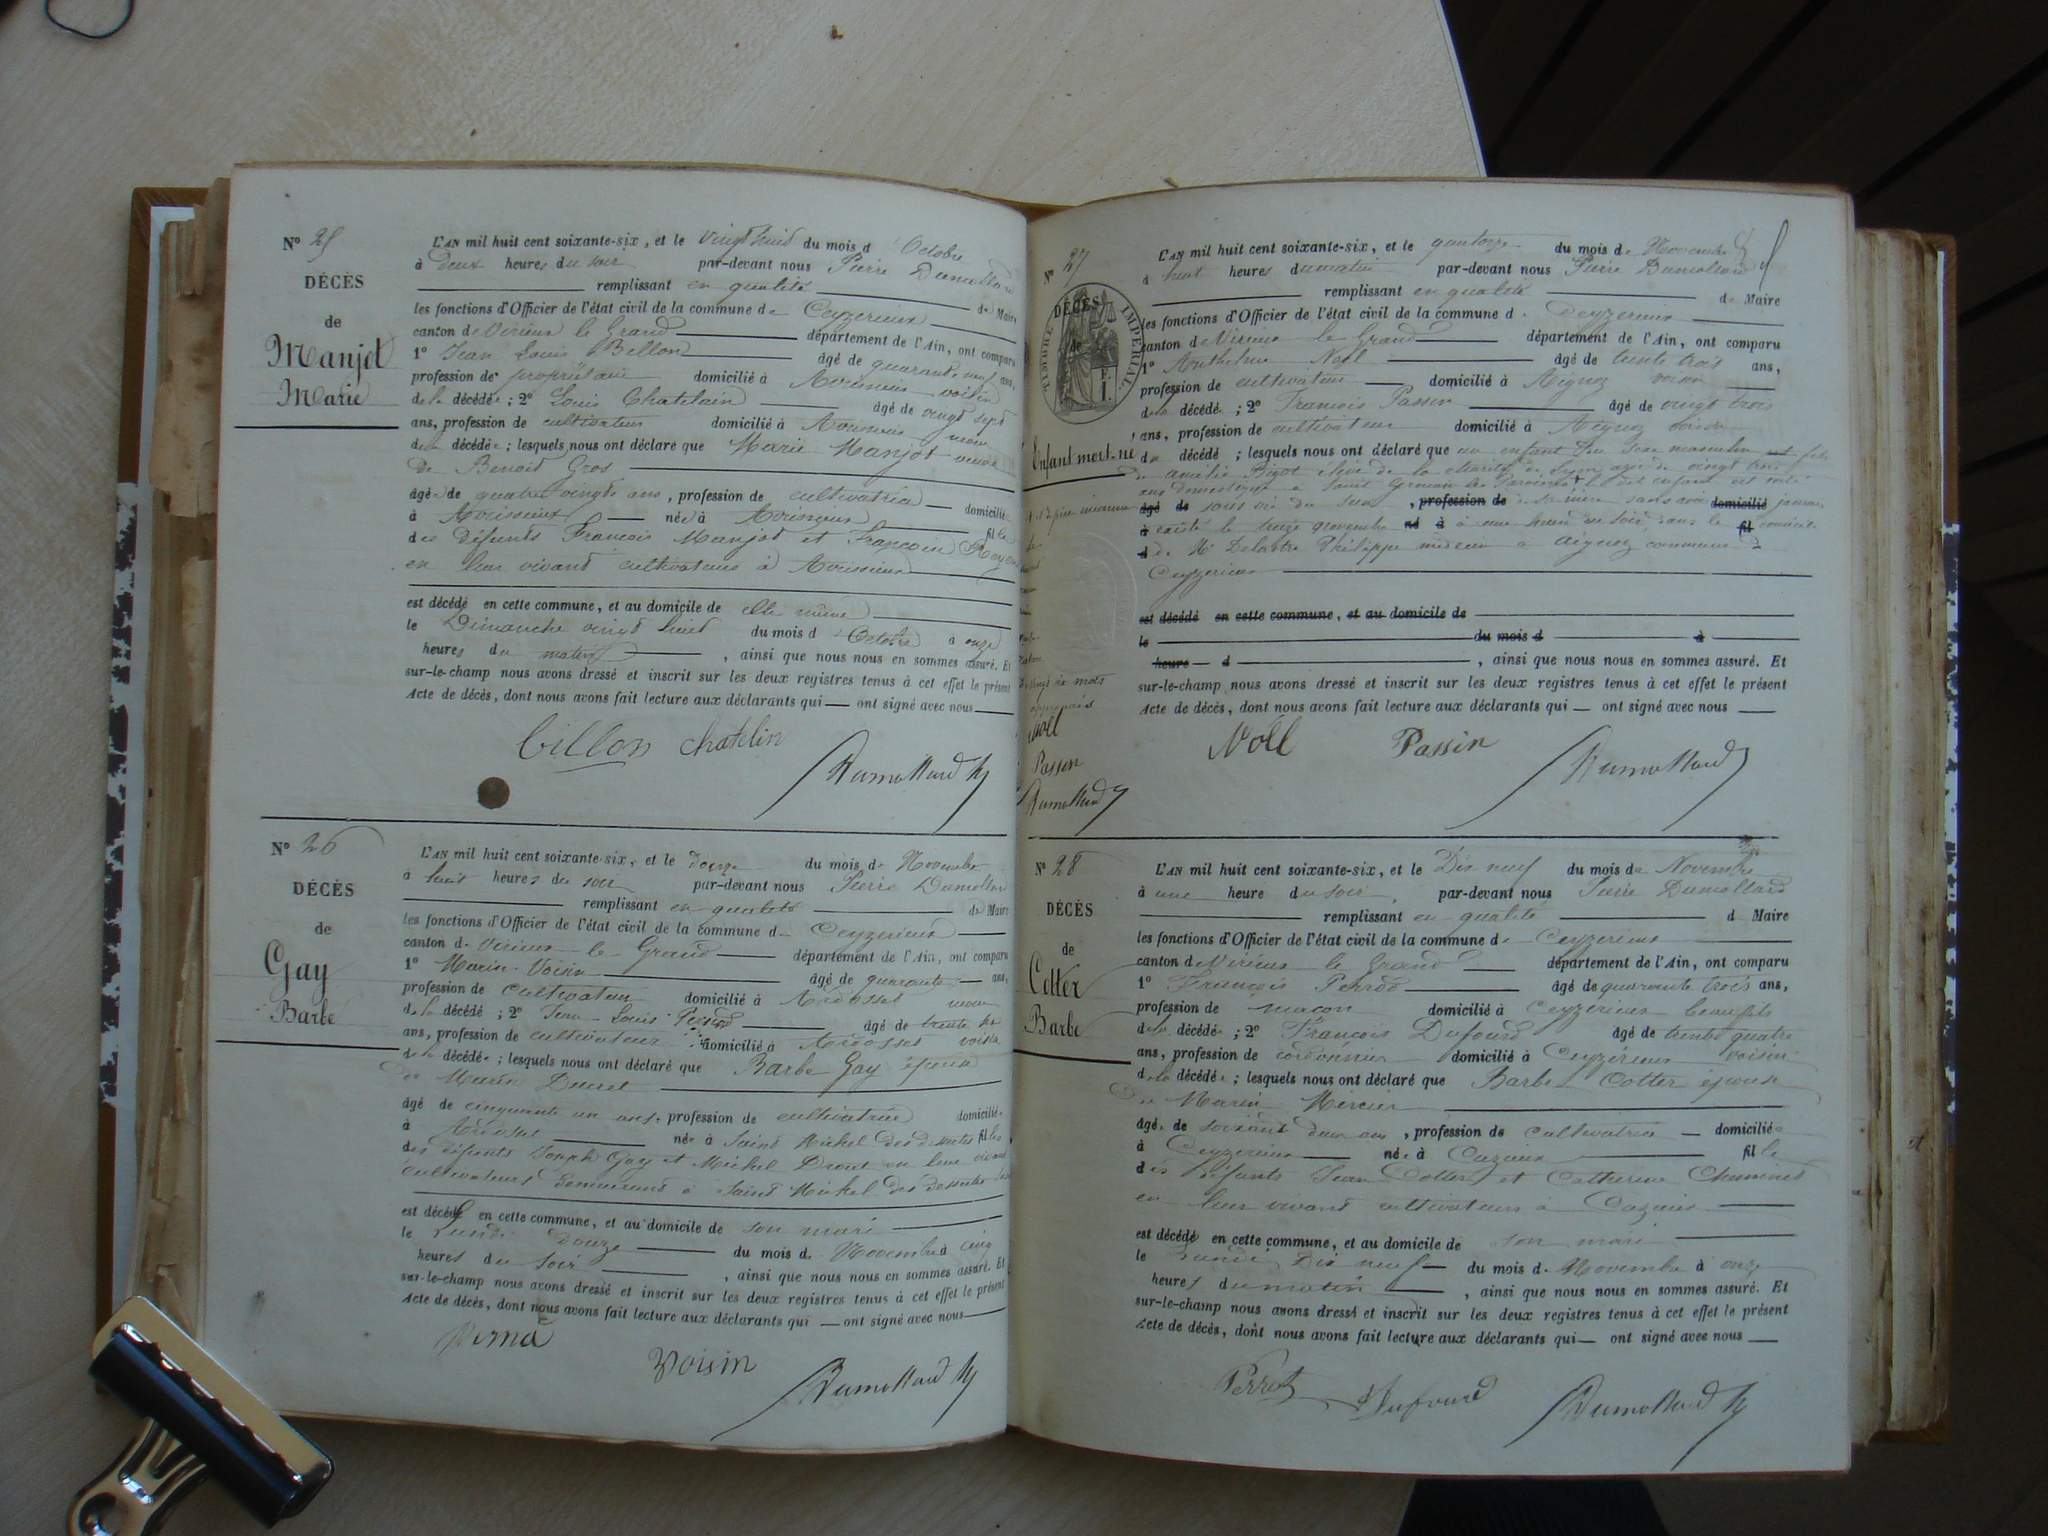 N° 25
DÉCÈS
de
Manjot
Marie
L'AN mil huit cent soixante-six, et le vingt huit du mois d'Octobre
à deux heures du soir par-devant nous Pierre Dumollard
remplissant en qualité de Maire
les fonctions d'Officier de l'état civil de la commune de Ceyzerieux
canton de Virieux le Grand département de l'Ain, ont comparu
1° Jean Louis Billon âgé de quarante ans,
profession de propriétaire domicilié à voisin
de la décédée; 2° Louis Chatelain âgé de vingt sept
ans, profession de cultivateur domicilié à
de la décédée; lesquels nous ont déclaré que Marie Manjot veuve
de Benoit Gros
âgée de quatre vingts ans, profession de cultivatrice domiciliée
à Avrissieux née à Avrissieux fille
des défunts François Manjot et Françoise
en leur vivant cultivateurs à Avrissieux
est décédé en cette commune, et au domicile de elle même
le Dimanche vingt huit du mois d'Octobre à onze
heures du matin, ainsi que nous nous en sommes assuré. Et
sur-le-champ nous avons dressé et inscrit sur les deux registres tenus à cet effet le présent
Acte de décès, dont nous avons fait lecture aux déclarants qui ont signé avec nous
Billon chatelin
Dumollard
N° 26
DÉCÈS
de
Gay
Barbe
L'AN mil huit cent soixante-six, et le douze du mois de Novembre
à huit heures du soir par-devant nous Pierre Dumollard
remplissant en qualité de Maire
les fonctions d'Officier de l'état civil de la commune de Ceyzerieux
canton de Virieux le Grand département de l'Ain, ont comparu
1° Marin Voisin âgé de quarante ans,
profession de cultivateur domicilié à Ardosset
de la décédé; 2° Jean Louis âgé de trente
ans, profession de cultivateur domicilié à Ardosset voisin
de la décédée; lesquels nous ont déclaré que Barbe Gay épouse
de Marin Ducret
âgé de cinquante un ans, profession de cultivatrice domiciliée
à Ardosset née à Saint Michel des dessertes fille
des défunts Joseph Gay et Michel Drout en leur vivant
cultivateurs demeurant à Saint Michel des dessertes
est décédé en cette commune, et au domicile de son mari
le Lundi douze du mois de Novembre à cinq
heures du soir, ainsi que nous nous en sommes assuré. Et
sur-le-champ nous avons dressé et inscrit sur les deux registres tenus à cet effet le présent
Acte de décès, dont nous avons fait lecture aux déclarants qui ont signé avec nous
Voisin
Dumollard
N° 27
DÉCÈS
de
TIMBRE IMPÉRIAL
Enfant mort-né
Noël
Passin
Dumollard
L'AN mil huit cent soixante-six, et le quatorze du mois de Novembre
à huit heures du matin par-devant nous Pierre Dumollard
remplissant en qualité de Maire
les fonctions d'Officier de l'état civil de la commune d Ceyzerieux
canton de Virieux le Grand département de l'Ain, ont comparu
1° Anthelme Noël âgé de trente trois ans,
profession de cultivateur domicilié à Aignoz voisin
de la décédé; 2° François Passin âgé de vingt trois
ans, profession de cultivateur domicilié à Aignoz voisin
du décédé; lesquels nous ont déclaré que un enfant du sexe masculin
de Amélie Bigot élève de la charité de Lyon agée de vingt trois
ans domestique à Saint Germain les Paroisses le dit enfant est sorti
âgé de profession de sans avoir domicilié jamais
à existé le treize novembre né à à une heure du soir dans le fil domicile
d de Mr Delastre Philippe médecin à Aignoz commune de
Ceyzerieux
est décédé en cette commune, et au domicile de
le du mois d à
heure d, ainsi que nous nous en sommes assuré. Et
sur-le-champ nous avons dressé et inscrit sur les deux registres tenus à cet effet le présent
Acte de décès, dont nous avons fait lecture aux déclarants qui ont signé avec nous
Noël Passin
Dumollard
N° 28
DÉCÈS
de
Cotter
Barbe
L'AN mil huit cent soixante-six, et le Dix neuf du mois de Novembre
à une heure du soir, par-devant nous Pierre Dumollard
remplissant en qualité d Maire
les fonctions d'Officier de l'état civil de la commune de Ceyzerieux
canton de Virieux le Grand département de l'Ain, ont comparu
1° François Perrod âgé de quarante trois ans,
profession de maçon domicilié à Ceyzerieux beau fils
de la décédée; 2° François Dufourd âgé de trente quatre
ans, profession de cordonnier domicilié à Ceyzérieux voisin
de la décédée; lesquels nous ont déclaré que Barbe Cotter épouse
de Marin Mercier
âgée de soixante deux ans, profession de cultivatrice domiciliée
à Ceyzerieux née à Cuzieux fille
des défunts Jean Cotter et Catherine
en leur vivant cultivateurs à Cuzieux
est décédé en cette commune, et au domicile de son mari
le Lundi Dix neuf du mois de Novembre à onze
heures du matin, ainsi que nous nous en sommes assuré. Et
sur-le-champ nous avons dressé et inscrit sur les deux registres tenus à cet effet le présent
Acte de décès, dont nous avons fait lecture aux déclarants qui ont signé avec nous
Perrot Dufourd Dumollard